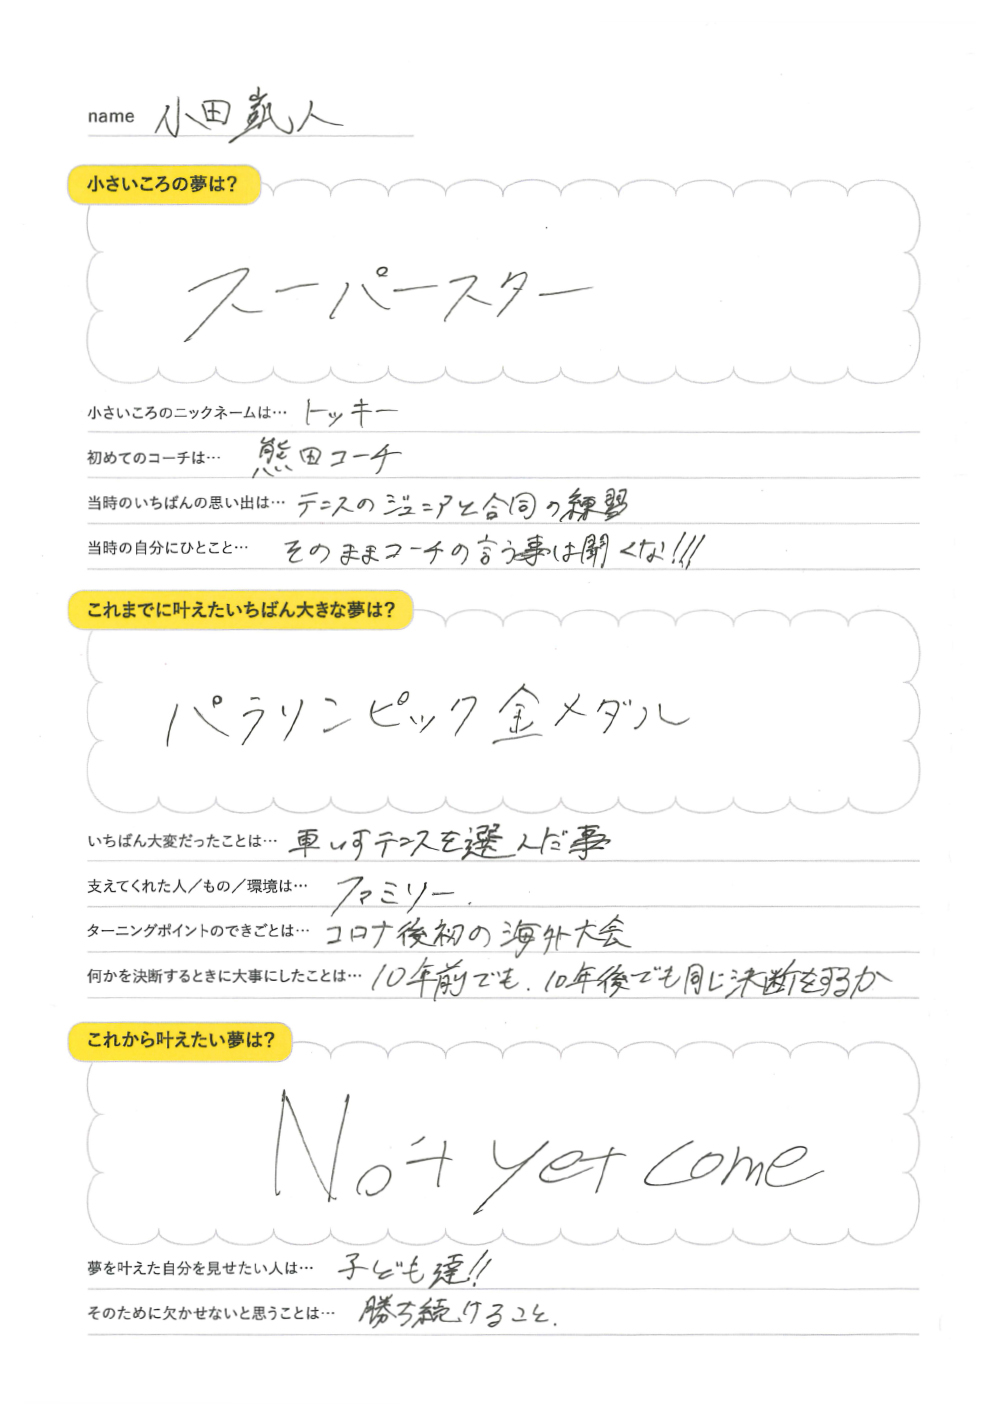 name 小田凱人
小さいころの夢は?
スーパースター
小さいころのニックネームは… トッキー
初めてのコーチは… 熊田コーチ
当時のいちばんの思い出は… テニスのジュニアと合同の練習
当時の自分にひとこと… そのままコーチの言う事は聞くな!!!
これまでに叶えたいちばん大きな夢は?
パラリンピック金メダル
いちばん大変だったことは… 車いすテニスを選んだ事
支えてくれた人/もの/環境は… ファミリー.
ターニングポイントのできごとは… コロナ後初の海外大会
何かを決断するときに大事にしたことは… 10年前でも、10年後でも同じ決断をするか
これから叶えたい夢は?
No't yet come
夢を叶えた自分を見せたい人は… 子ども達!!
そのために欠かせないと思うことは… 勝ち続けること.